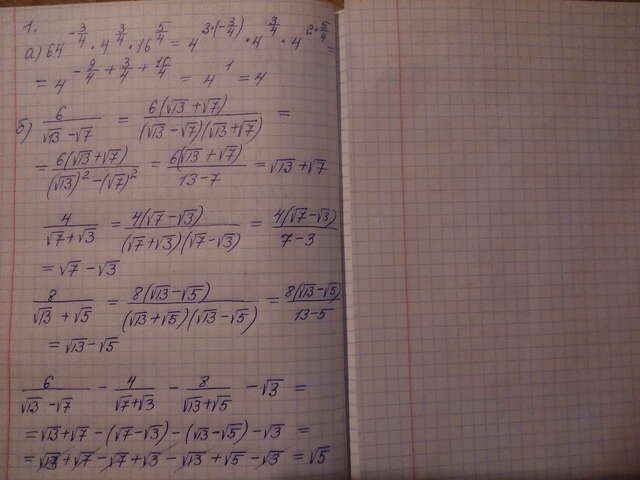 1.
а) 64^(-3/4) · 4^(3/4) · 16^(5/4) = 4^(3·(-3/4)) · 4^(3/4) · 4^(2·5/4) =
= 4^(-9/4 + 3/4 + 10/4) = 4^1 = 4
б) 6/(√13 - √7) = 6(√13 + √7)/((√13 - √7)(√13 + √7)) =
= 6(√13 + √7)/((√13)² - (√7)²) = 6(√13 + √7)/(13 - 7) = √13 + √7
4/(√7 + √3) = 4(√7 - √3)/((√7 + √3)(√7 - √3)) = 4(√7 - √3)/(7 - 3)
= √7 - √3
8/(√13 + √5) = 8(√13 - √5)/((√13 + √5)(√13 - √5)) = 8(√13 - √5)/(13 - 5)
= √13 - √5
6/(√13 - √7) - 4/(√7 + √3) - 8/(√13 + √5) - √3 =
= √13 + √7 - (√7 - √3) - (√13 - √5) - √3 =
= √13 + √7 - √7 + √3 - √13 + √5 - √3 = √5